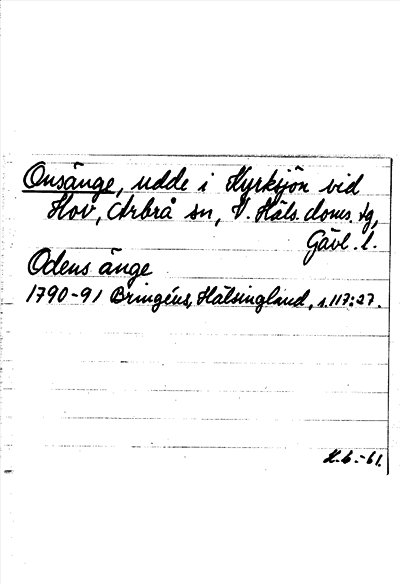 Onsänge, udde i Kyrksjön vid
Hov, Arbrå sn, V. Häls. doms. tg,
Gävl. l.
Odens änge
1790-91 Bringéus, Hälsingland, s. 117:27.